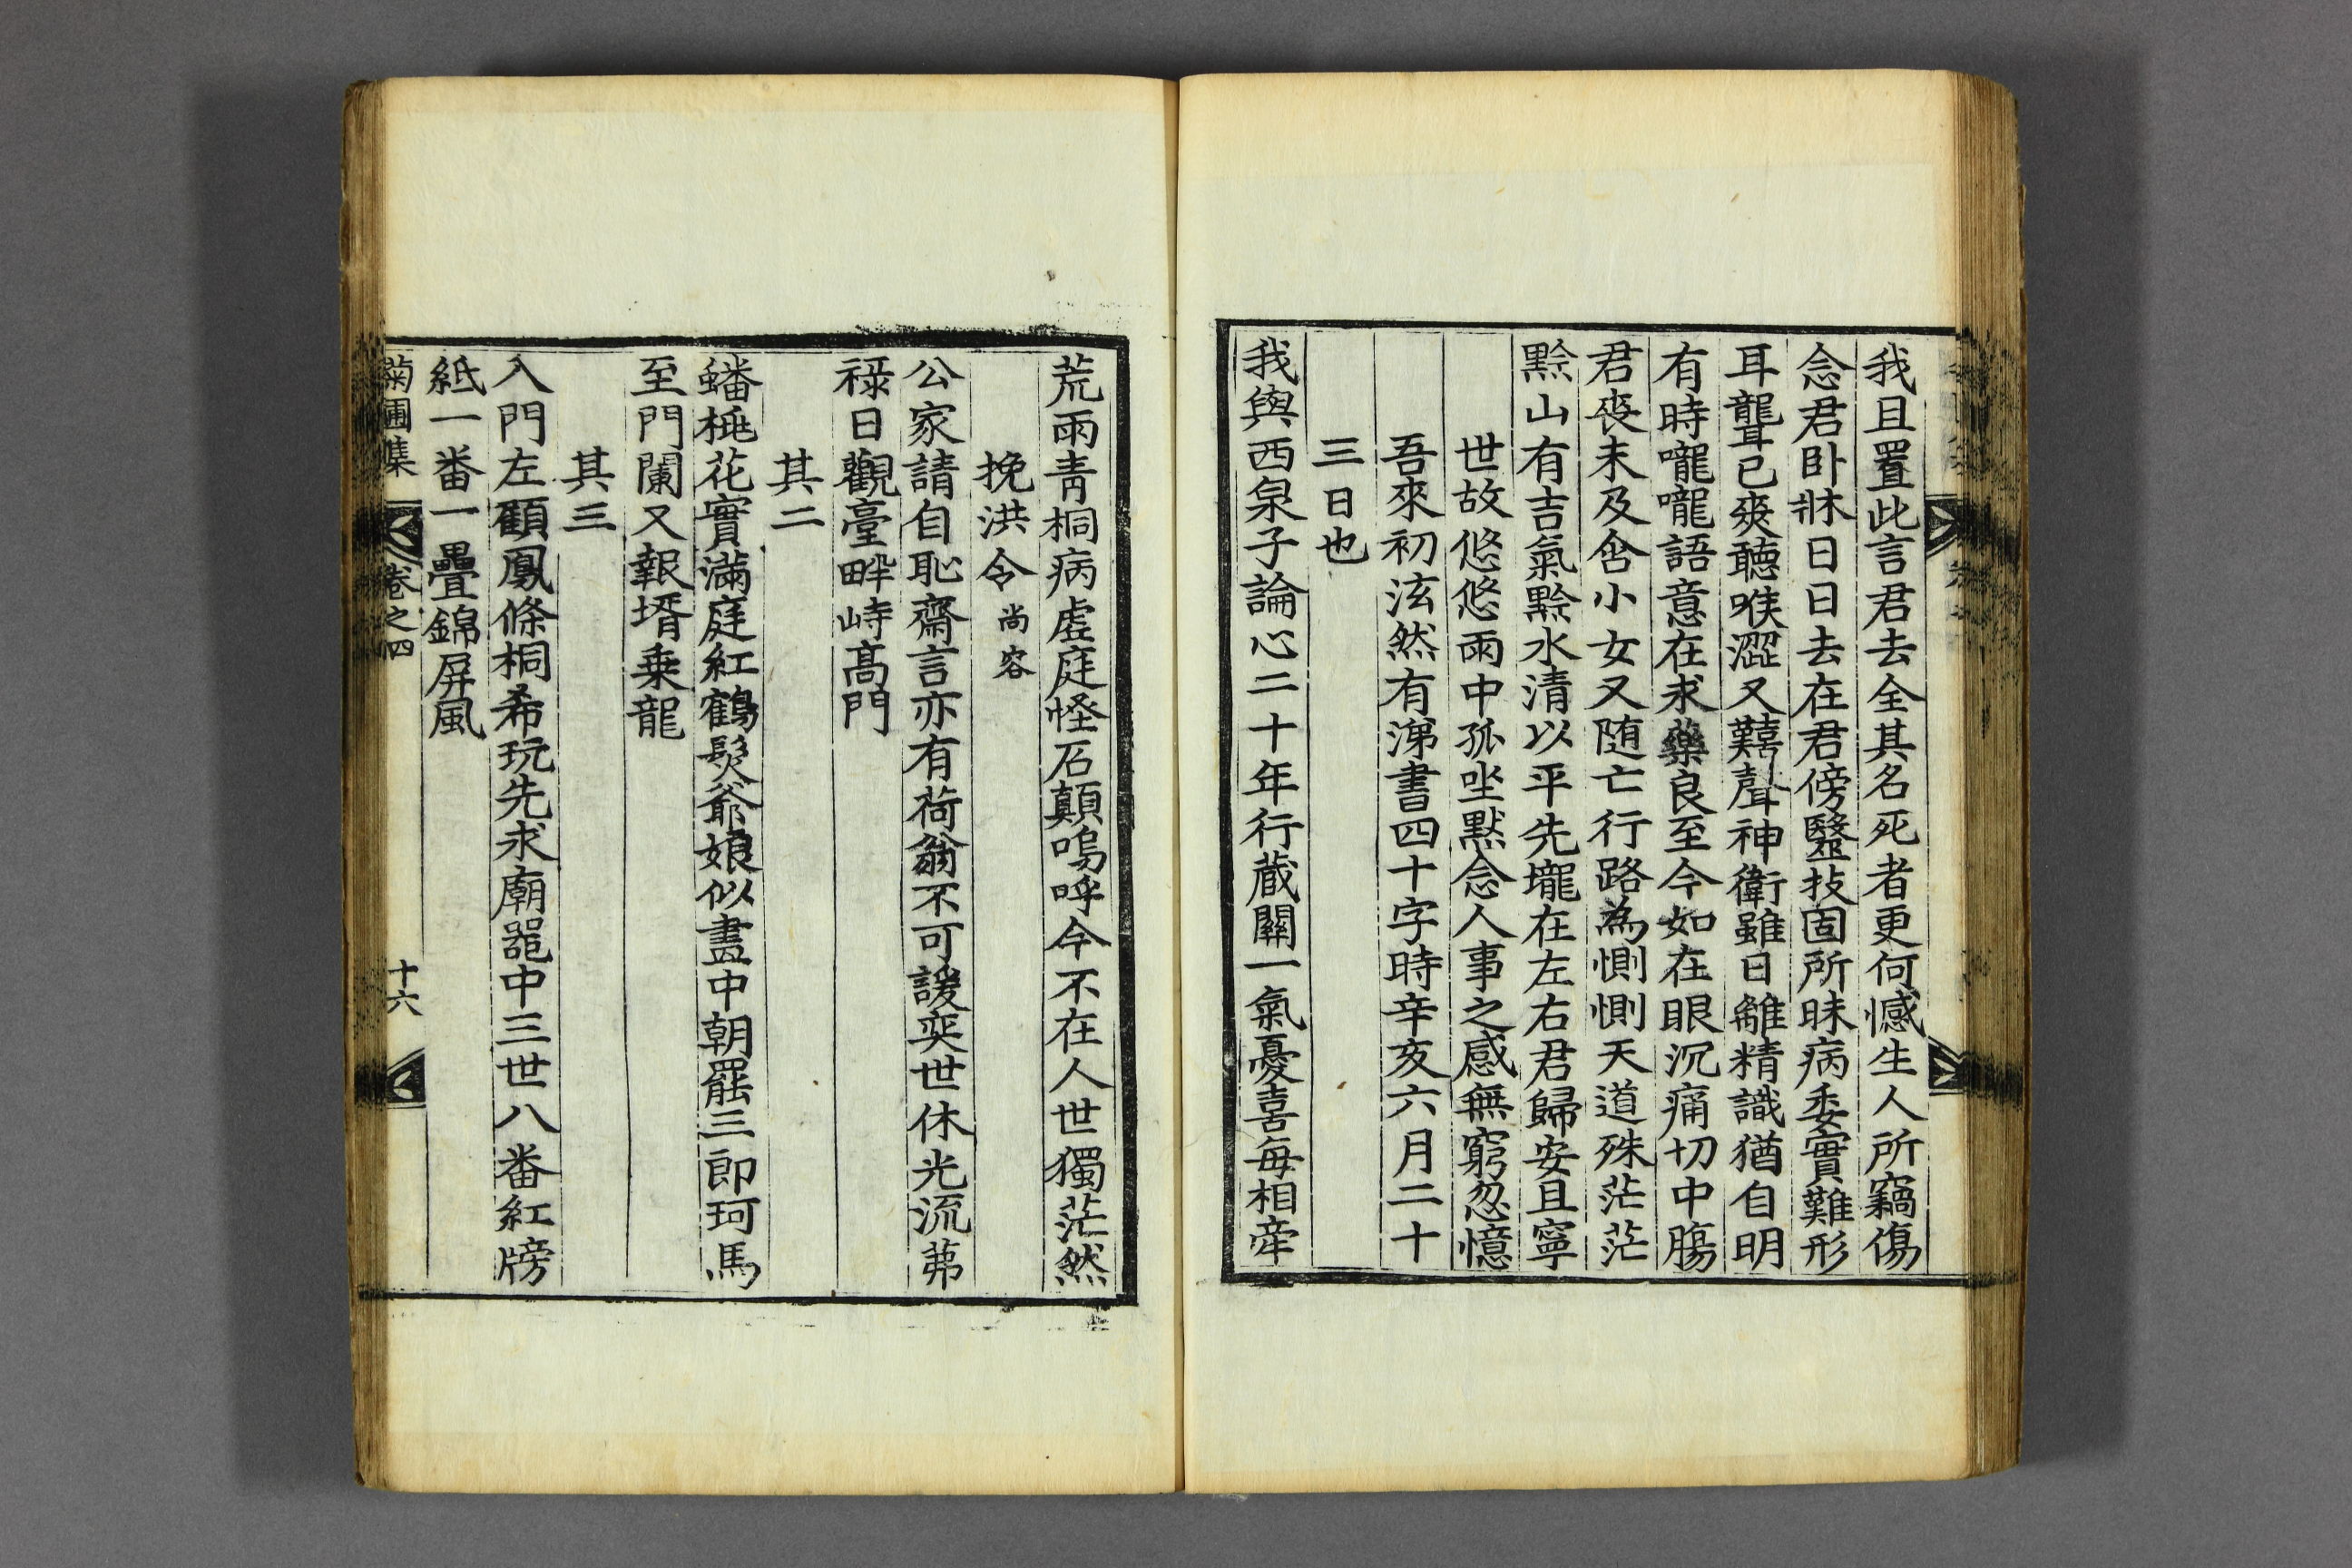 我且置此言君去全其名死者更何憾生人所竊傷
念君卧牀日日去在君傍醫技固所昧病委實難形
耳聾已爽聽喉澀又囏聲神衛雖日離精識猶自明
有時嚨嚨語意在求藥良至今如在眼沉痛切中膓
君喪未及舎小女又随亡行路為惻惻天道殊茫茫
黔山有吉氣黔水清以平先壠在左右君歸安且寧
世故悠悠雨中孤坐默念人事之感無窮忽憶
吾來初泫然有涕書四十字時辛亥六月二十
三日也
我與西泉子論心二十年行蔵關一氣憂喜每相牽
荒雨青桐病虛庭怪石顛嗚呼今不在人世獨茫然
挽洪令尚容
公家請自恥齋言亦有荷翁不可諼奕世休光流茀
祿日觀臺畔峙髙門
其二
蟠桃花實滿庭紅鶴髮爺娘似盡中朝罷三郎珂馬
至門闌又報壻乗龍
其三
入門左顧鳳條桐希玩先求廟器中三世八番紅牓
紙一番一疊錦屏風
菊圃集 卷之四 十六